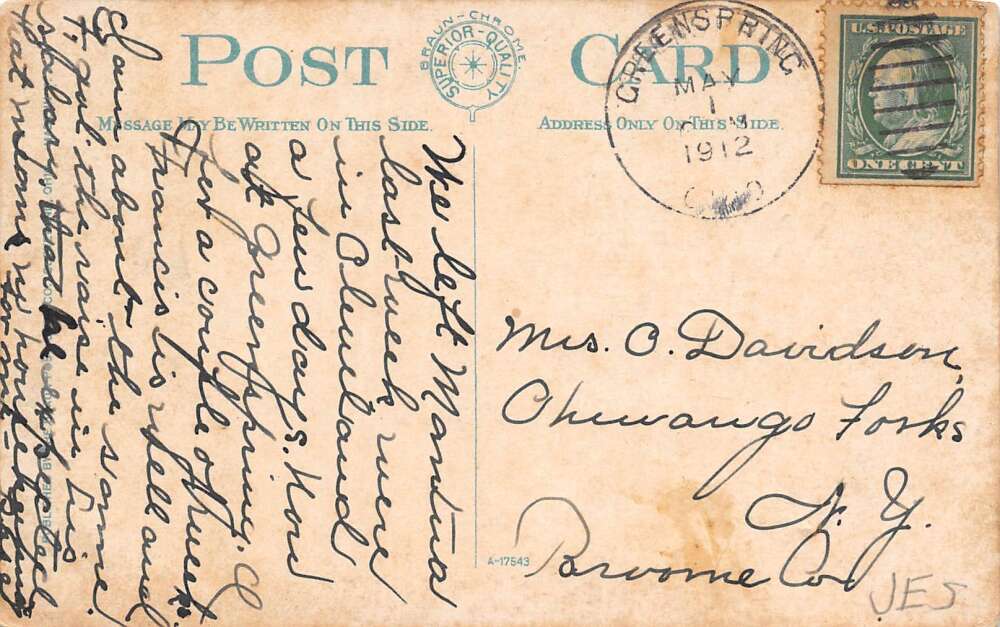 POST CARD
BRAUN-CHROME
SUPERIOR-QUALITY
MESSAGE MAY BE WRITTEN ON THIS SIDE.
ADDRESS ONLY ON THIS SIDE.
GREENSPRING
MAY
1
1912
OHIO
U.S. POSTAGE
ONE CENT
We left Mantua
last week, were
in Cleveland
a few days. Now
at Greenspring, O
for a couple of weeks.
Francis is well and
I am about the same.
F. got the raise in his
salary that he expected
Mrs. O. Davidson,
Chenango Forks
N. Y.
Broome Co
A-17543
JES